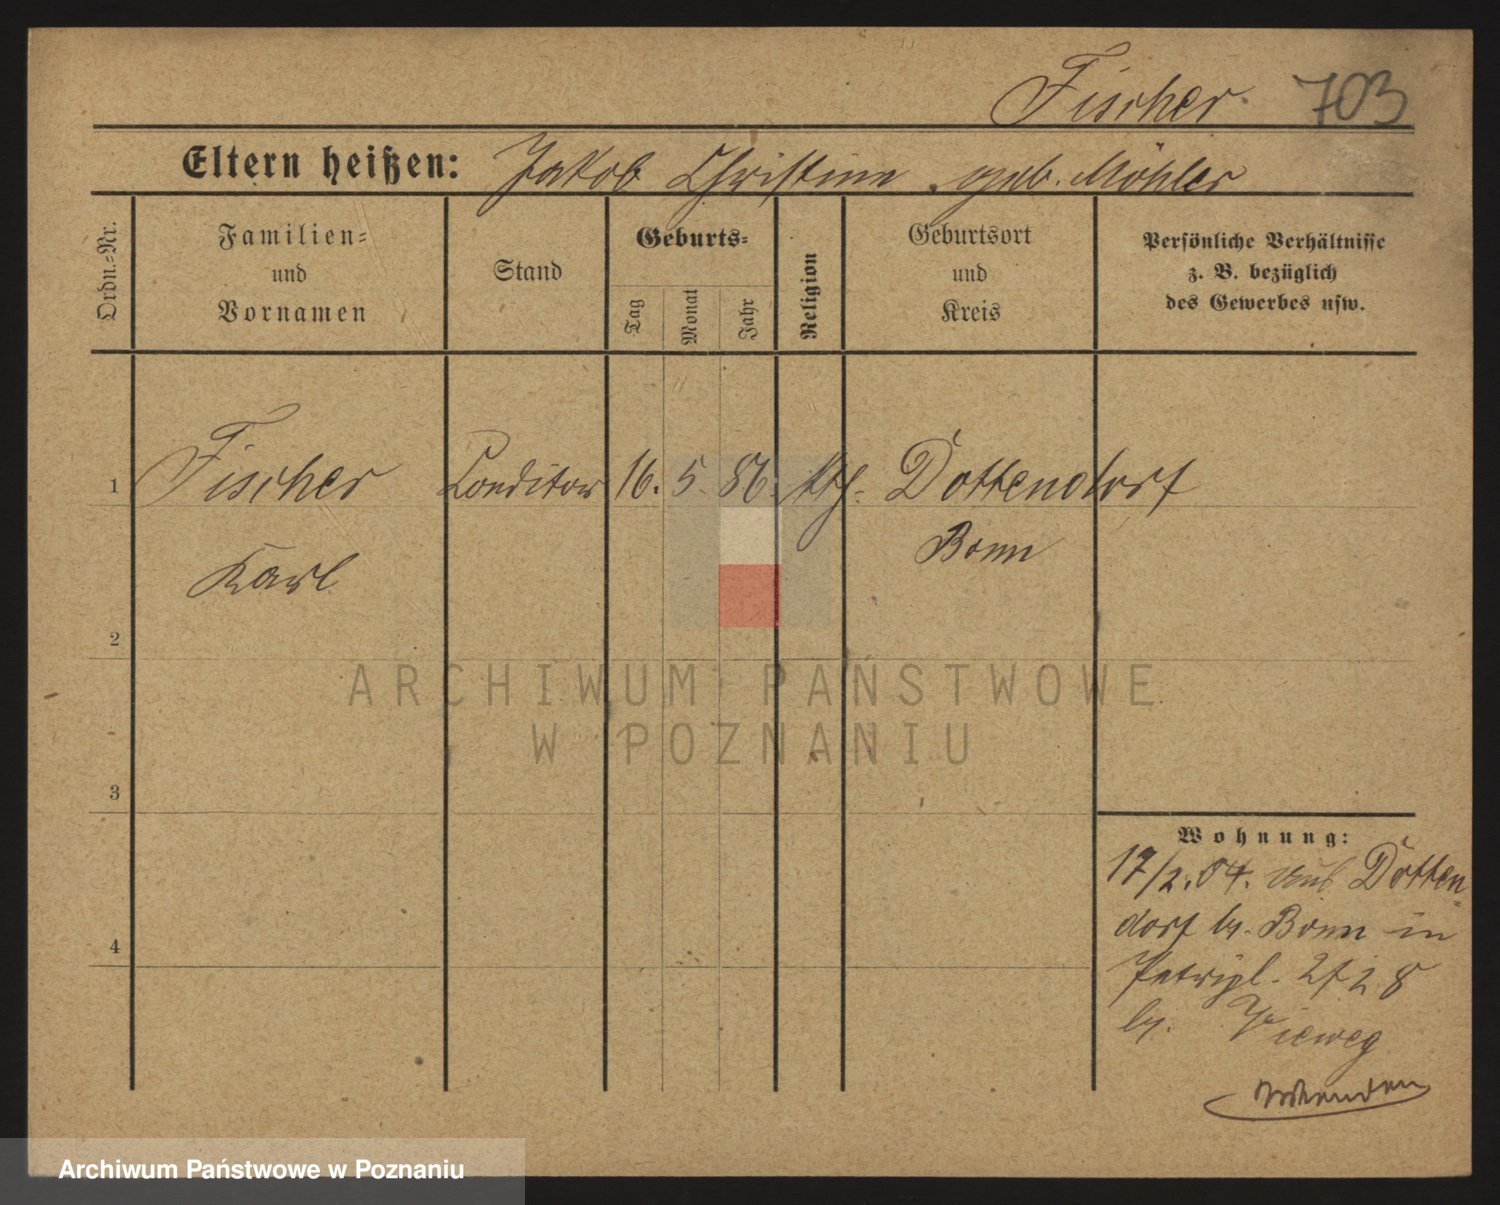 Fischer 703
Eltern heißen: Jakob Christine geb. Möhler
Ordn.-Nr.
Familien-
und
Vornamen
Stand
Geburts-
Tag
Monat
Jahr
Religion
Geburtsort
und
Kreis
Persönliche Verhältnisse
z. B. bezüglich
des Gewerbes usw.
1 Fischer Conditor 16. 5. 86. kth. Dottendorf
Bonn
Karl
2
3
4
Wohnung:
17/2. 04. aus Dotten-
dorf b. Bonn in
28
b. Vieweg
ARCHIWUM PAŃSTWOWE
W POZNANIU
Archiwum Państwowe w Poznaniu